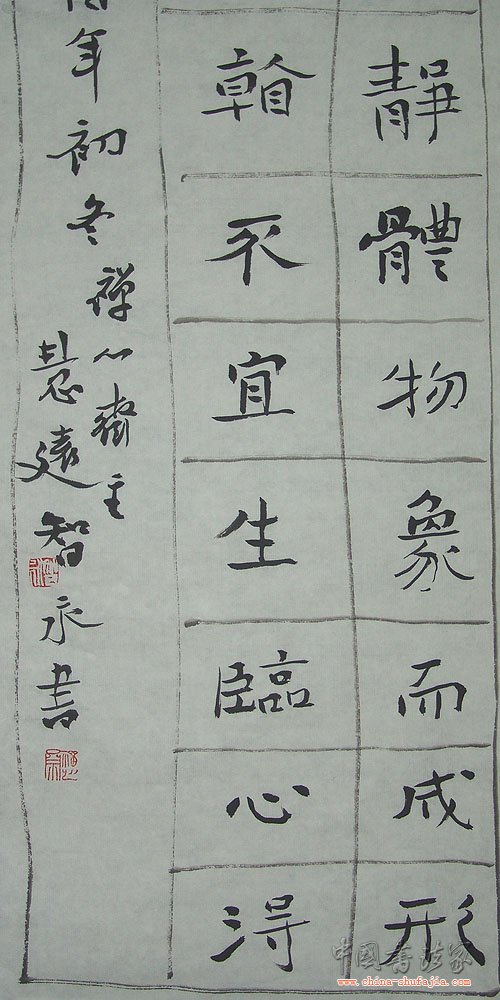 靜體物象而成形
不宜生臨心得
年初冬禪心齋主
慧遠智永書
中國書法家
www.china-shufajia.com